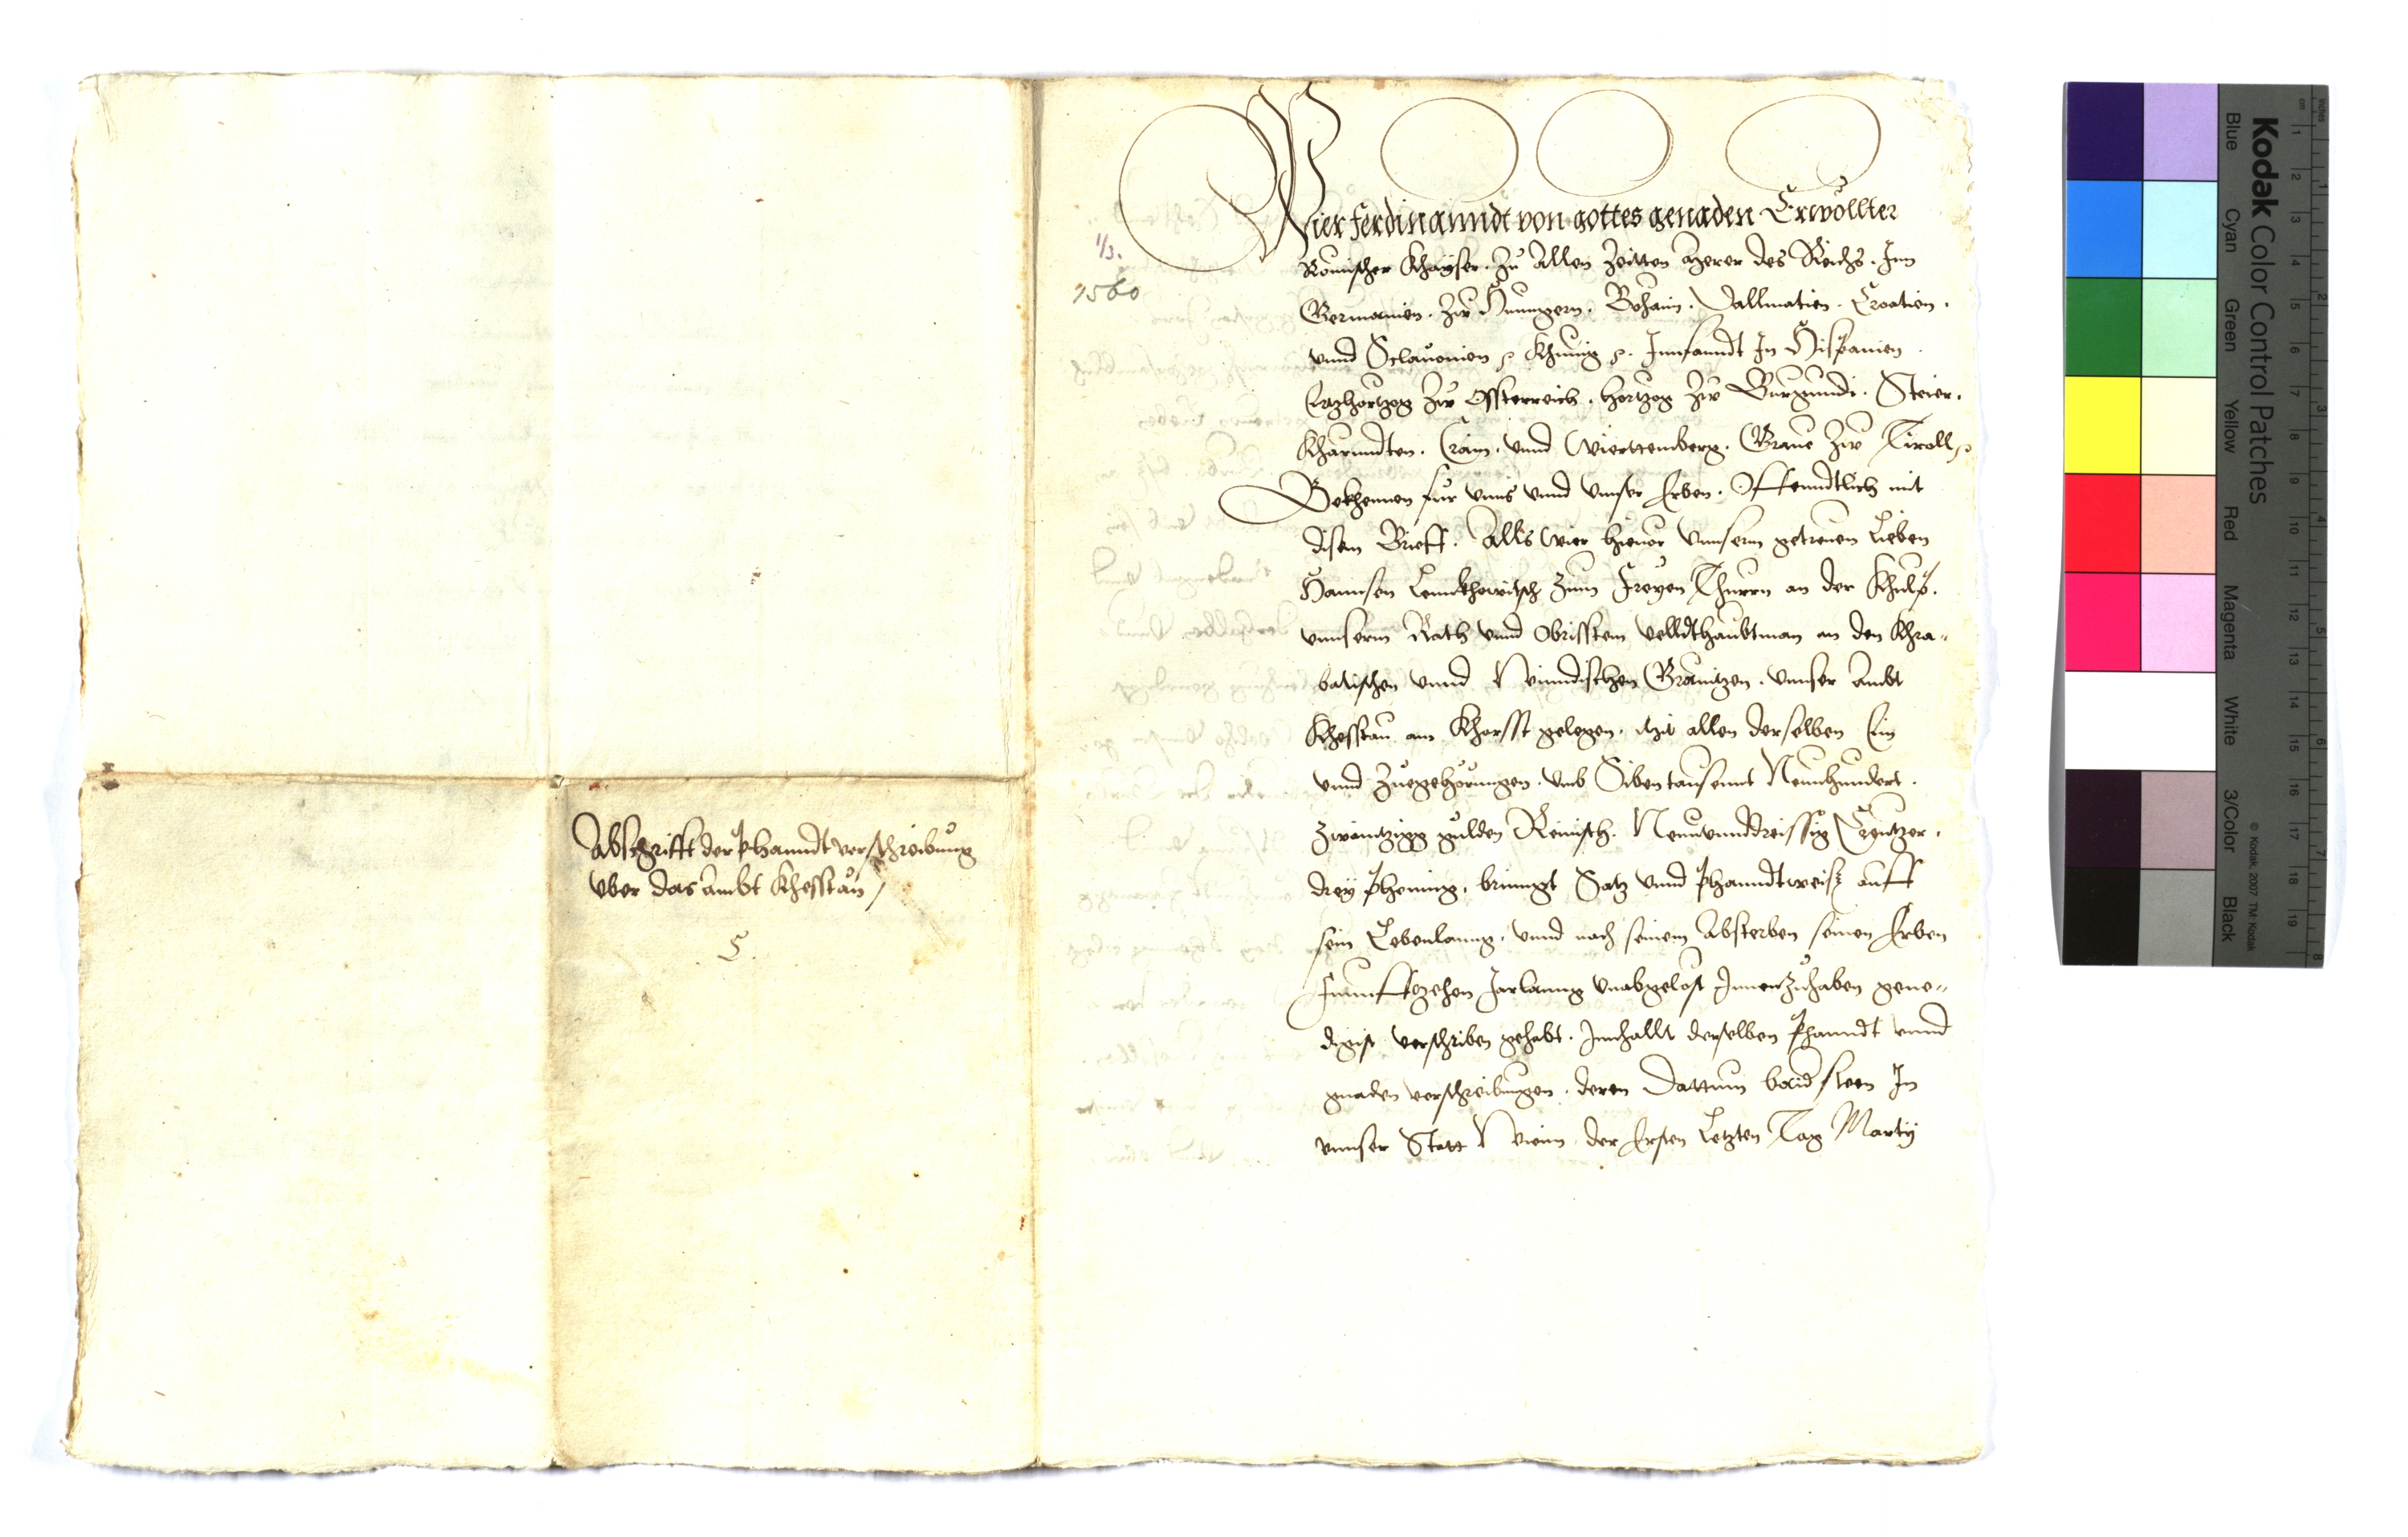 Abschrifft der Phanndt verschreibung
vber das Ambt Khesstau /
5.
1/3.
1560
Wier ferdinanndt von gottes genaden Erwöllter
Römischer Khayser. Zu allen Zeitten merer des Reichs. Inn
Germanien. Zw Hunngern. Behaim. Dallmatien. Croatien.
vnnd Sclauonien Khunig. Innfanndt In Hispanien.
Ertzhertzog Zw Ossterreich. Hertzog Zw Burgundi. Steier.
Kharnndten. Crain. vnnd Wierttemberg. Graue Zw Tiroll
Bekhennen für vnns vnnd vnnser Erben. Offenndtlich mit
disem Brieff. Alls wier hieuor vnnserm getreuen Lieben
Hannsen Lennkhowitsch Zum Freyen Thurrn an der Khulp.
vnnserm Rath vnnd Obrissten velldthaubtman an den Khra-
batischen vnnd Winndischen Gränitzen. vnnser Ambt
Khesstau am Kharsst gelegen. Mit allen derselben Ein
vnnd Zuegehörungen. vmb Sibentausennt Neunhundert.
Zwaintzigg gulden Reinisch. Neunvnnddreissig Creutzer.
drey phening. brinngt Satz vnnd Phanndtweisz auff
sein Lebenlanng. vnnd nach seinem Absterben seinen Erben
Funnffzehen Jarlanng vnabgelöst Innenzuhaben gene-
digist verschriben gehabt. Innhallt derselben Phanndt vnnd
gnaden verschreibungen. deren Dattum baid steen In
vnnser Statt Wienn der Ersten Letzten Tag Marty
Kodak Color Control Patches
Blue Cyan Green Yellow Red Magenta White 3/Color Black
© Kodak, 2007 TM: Kodak
cm 1 2 3 4 5 6 7 8 9 10 11 12 13 14 15 16 17 18 19
Inches 1 2 3 4 5 6 7 8